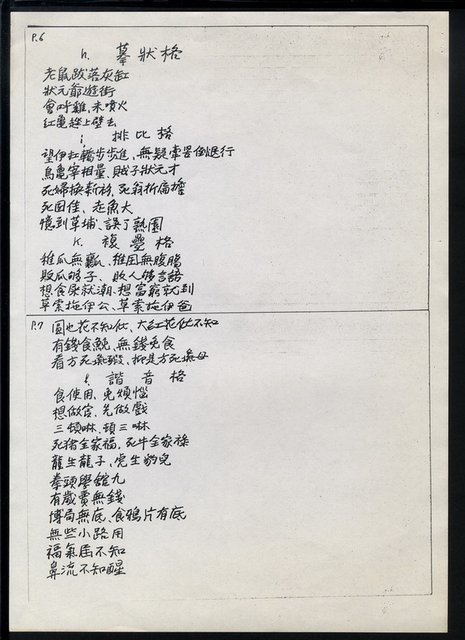 P.6
h. 摹狀格
老鼠跋落灰缸
狀元爺遊街
會呼雞,未噴火
紅龜趖上壁去
i 排比格
望伊扛轎步步進,無疑牽罟倒退行
烏龜宰相量,賊子狀元才
死婦換新衫,死翁折扁擔
死囝佳、走魚大
惜到草埔、誤了熟園
K. 複疊格
稚瓜無瓤、稚囝無腹腸
敗瓜够子、敗人够言語
想食尿就潮、想富窮就到
草索拖伊公、草索拖伊爸
P.7 圓也花不知化、大紅花化不知
有錢食鮸,無錢免食
看方死
l. 諧音格
食使用、免煩惱
想做官、先做戲
三頓啉、頓三啉
死豬全家福,死牛全家祿
龍生龍子、虎生豹兒
拳頭學館九
有歲賣無錢
博局無底、食鴉片有底
無些小路用
福氣居不知
鼻流不知醒